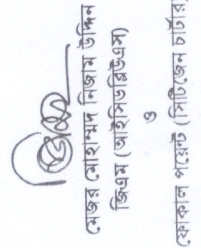 মেজর মোহাম্মদ নিজাম উদ্দিন
জিএম (আইসিডব্লিউএস)
ও
ফোকাল পয়েন্ট (সিটিজেন চার্টার)